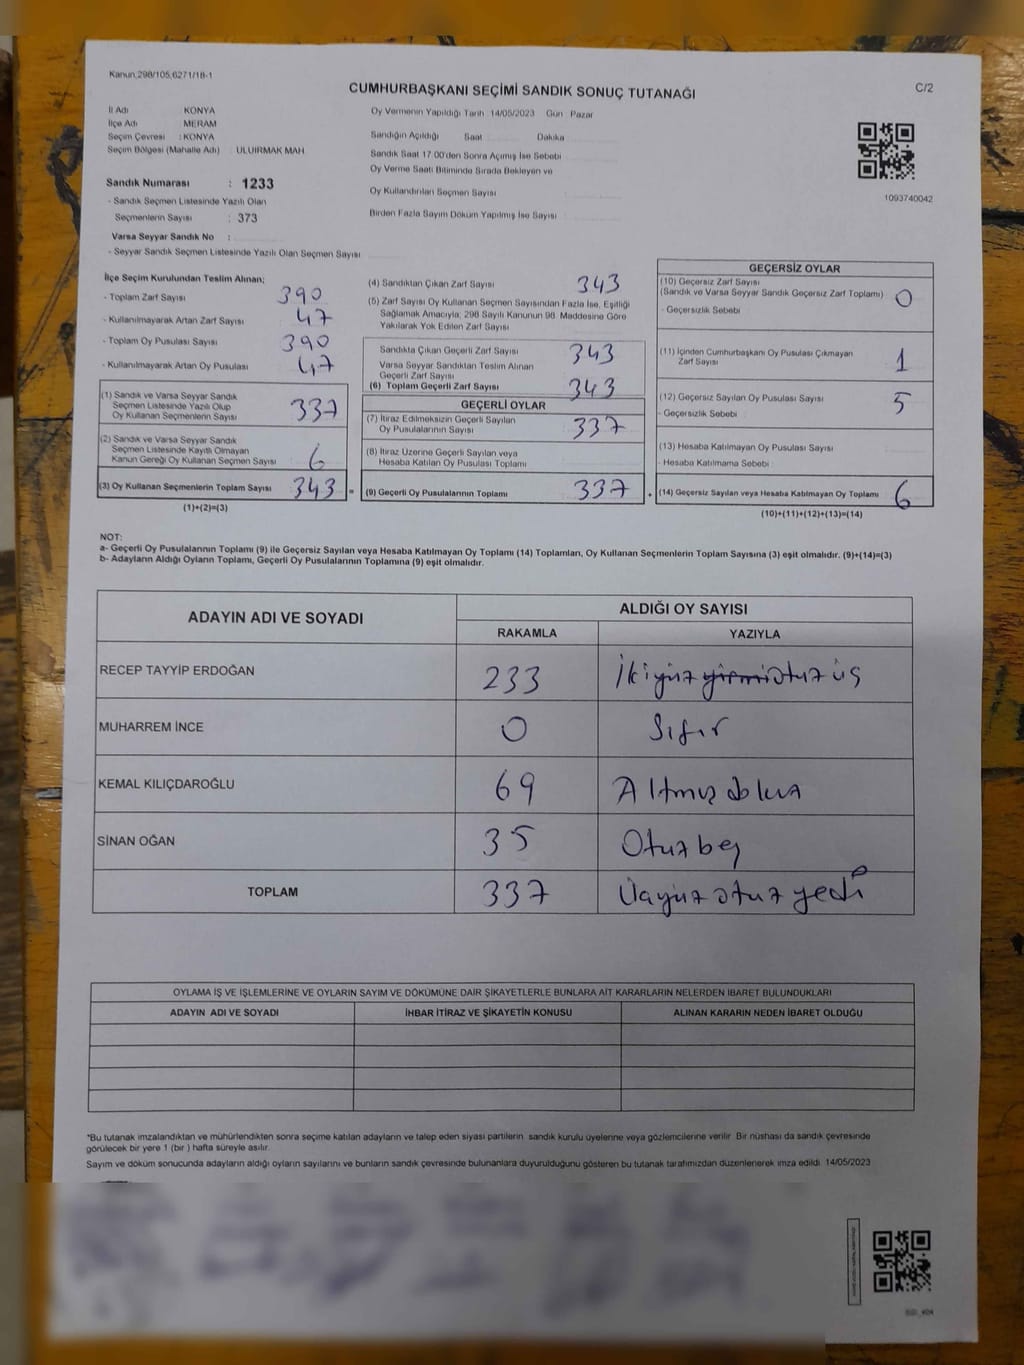 Kanun,298/105,6271/18-1
CUMHURBAŞKANI SEÇİMİ SANDIK SONUÇ TUTANAĞI
C/2
İl Adı KONYA
İlçe Adı MERAM
Seçim Çevresi : KONYA
Seçim Bölgesi (Mahalle Adı) : ULUIRMAK MAH.
Sandık Numarası : 1233
- Sandık Seçmen Listesinde Yazılı Olan
Seçmenlerin Sayısı : 373
Varsa Seyyar Sandık No :
- Seyyar Sandık Seçmen Listesinde Yazılı Olan Seçmen Sayısı
Oy Vermenin Yapıldığı Tarih 14/05/2023 Gün Pazar
Sandığın Açıldığı Saat Dakika
Sandık Saat 17.00'den Sonra Açımış İse Sebebi
Oy Verme Saati Bitiminde Sırada Bekleyen ve
Oy Kullandırılan Seçmen Sayısı
Birden Fazla Sayım Döküm Yapılmış İse Sayısı
1093740042
İlçe Seçim Kurulundan Teslim Alınan;
- Toplam Zarf Sayısı 390
- Kullanılmayarak Artan Zarf Sayısı 47
- Toplam Oy Pusulası Sayısı 390
- Kullanılmayarak Artan Oy Pusulası 47
(1) Sandık ve Varsa Seyyar Sandık
Seçmen Listesinde Yazılı Olup
Oy Kullanan Seçmenlerin Sayısı 337
(2) Sandık ve Varsa Seyyar Sandık
Seçmen Listesinde Kayıtlı Olmayan
Kanun Gereği Oy Kullanan Seçmen Sayısı 6
(3) Oy Kullanan Seçmenlerin Toplam Sayısı 343 =
(1)+(2)=(3)
(4) Sandıktan Çıkan Zarf Sayısı 343
(5) Zarf Sayısı Oy Kullanan Seçmen Sayısından Fazla İse, Eşitliği
Sağlamak Amacıyla; 298 Sayılı Kanunun 98. Maddesine Göre
Yakılarak Yok Edilen Zarf Sayısı
Sandıkta Çıkan Geçerli Zarf Sayısı 343
Varsa Seyyar Sandıktan Teslim Alınan
Geçerli Zarf Sayısı
(6) Toplam Geçerli Zarf Sayısı 343
GEÇERLİ OYLAR
(7) İtiraz Edilmeksizin Geçerli Sayılan
Oy Pusulalarının Sayısı 337
(8) İtiraz Üzerine Geçerli Sayılan veya
Hesaba Katılan Oy Pusulası Toplamı
(9) Geçerli Oy Pusulalarının Toplamı 337 +
GEÇERSİZ OYLAR
(10) Geçersiz Zarf Sayısı
(Sandık ve Varsa Seyyar Sandık Geçersiz Zarf Toplamı) 0
- Geçersizlik Sebebi
(11) İçinden Cumhurbaşkanı Oy Pusulası Çıkmayan
Zarf Sayısı 1
(12) Geçersiz Sayılan Oy Pusulası Sayısı 5
- Geçersizlik Sebebi
(13) Hesaba Katılmayan Oy Pusulası Sayısı
- Hesaba Katılmama Sebebi
(14) Geçersiz Sayılan veya Hesaba Katılmayan Oy Toplamı 6
(10)+(11)+(12)+(13)=(14)
NOT:
a- Geçerli Oy Pusulalarının Toplamı (9) ile Geçersiz Sayılan veya Hesaba Katılmayan Oy Toplamı (14) Toplamları, Oy Kullanan Seçmenlerin Toplam Sayısına (3) eşit olmalıdır. (9)+(14)=(3)
b- Adayların Aldığı Oyların Toplamı, Geçerli Oy Pusulalarının Toplamına (9) eşit olmalıdır.
ADAYIN ADI VE SOYADI
ALDIĞI OY SAYISI
RAKAMLA YAZIYLA
RECEP TAYYİP ERDOĞAN 233 İkiyüz yirmi otuz üç
MUHARREM İNCE 0 Sıfır
KEMAL KILIÇDAROĞLU 69 Altmış dokuz
SİNAN OĞAN 35 Otuz beş
TOPLAM 337 Üçyüz otuz yedi
OYLAMA İŞ VE İŞLEMLERİNE VE OYLARIN SAYIM VE DÖKÜMÜNE DAİR ŞİKAYETLERLE BUNLARA AİT KARARLARIN NELERDEN İBARET BULUNDUKLARI
ADAYIN ADI VE SOYADI İHBAR İTİRAZ VE ŞİKAYETİN KONUSU ALINAN KARARIN NEDEN İBARET OLDUĞU
*Bu tutanak imzalandıktan ve mühürlendikten sonra seçime katılan adayların ve talep eden siyasi partilerin sandık kurulu üyelerine veya gözlemcilerine verilir. Bir nüshası da sandık çevresinde
görülecek bir yere 1 (bir ) hafta süreyle asılır.
Sayım ve döküm sonucunda adayların aldığı oyların sayılarını ve bunların sandık çevresinde bulunanlara duyurulduğunu gösteren bu tutanak tarafımızdan düzenlenerek imza edildi. 14/05/2023